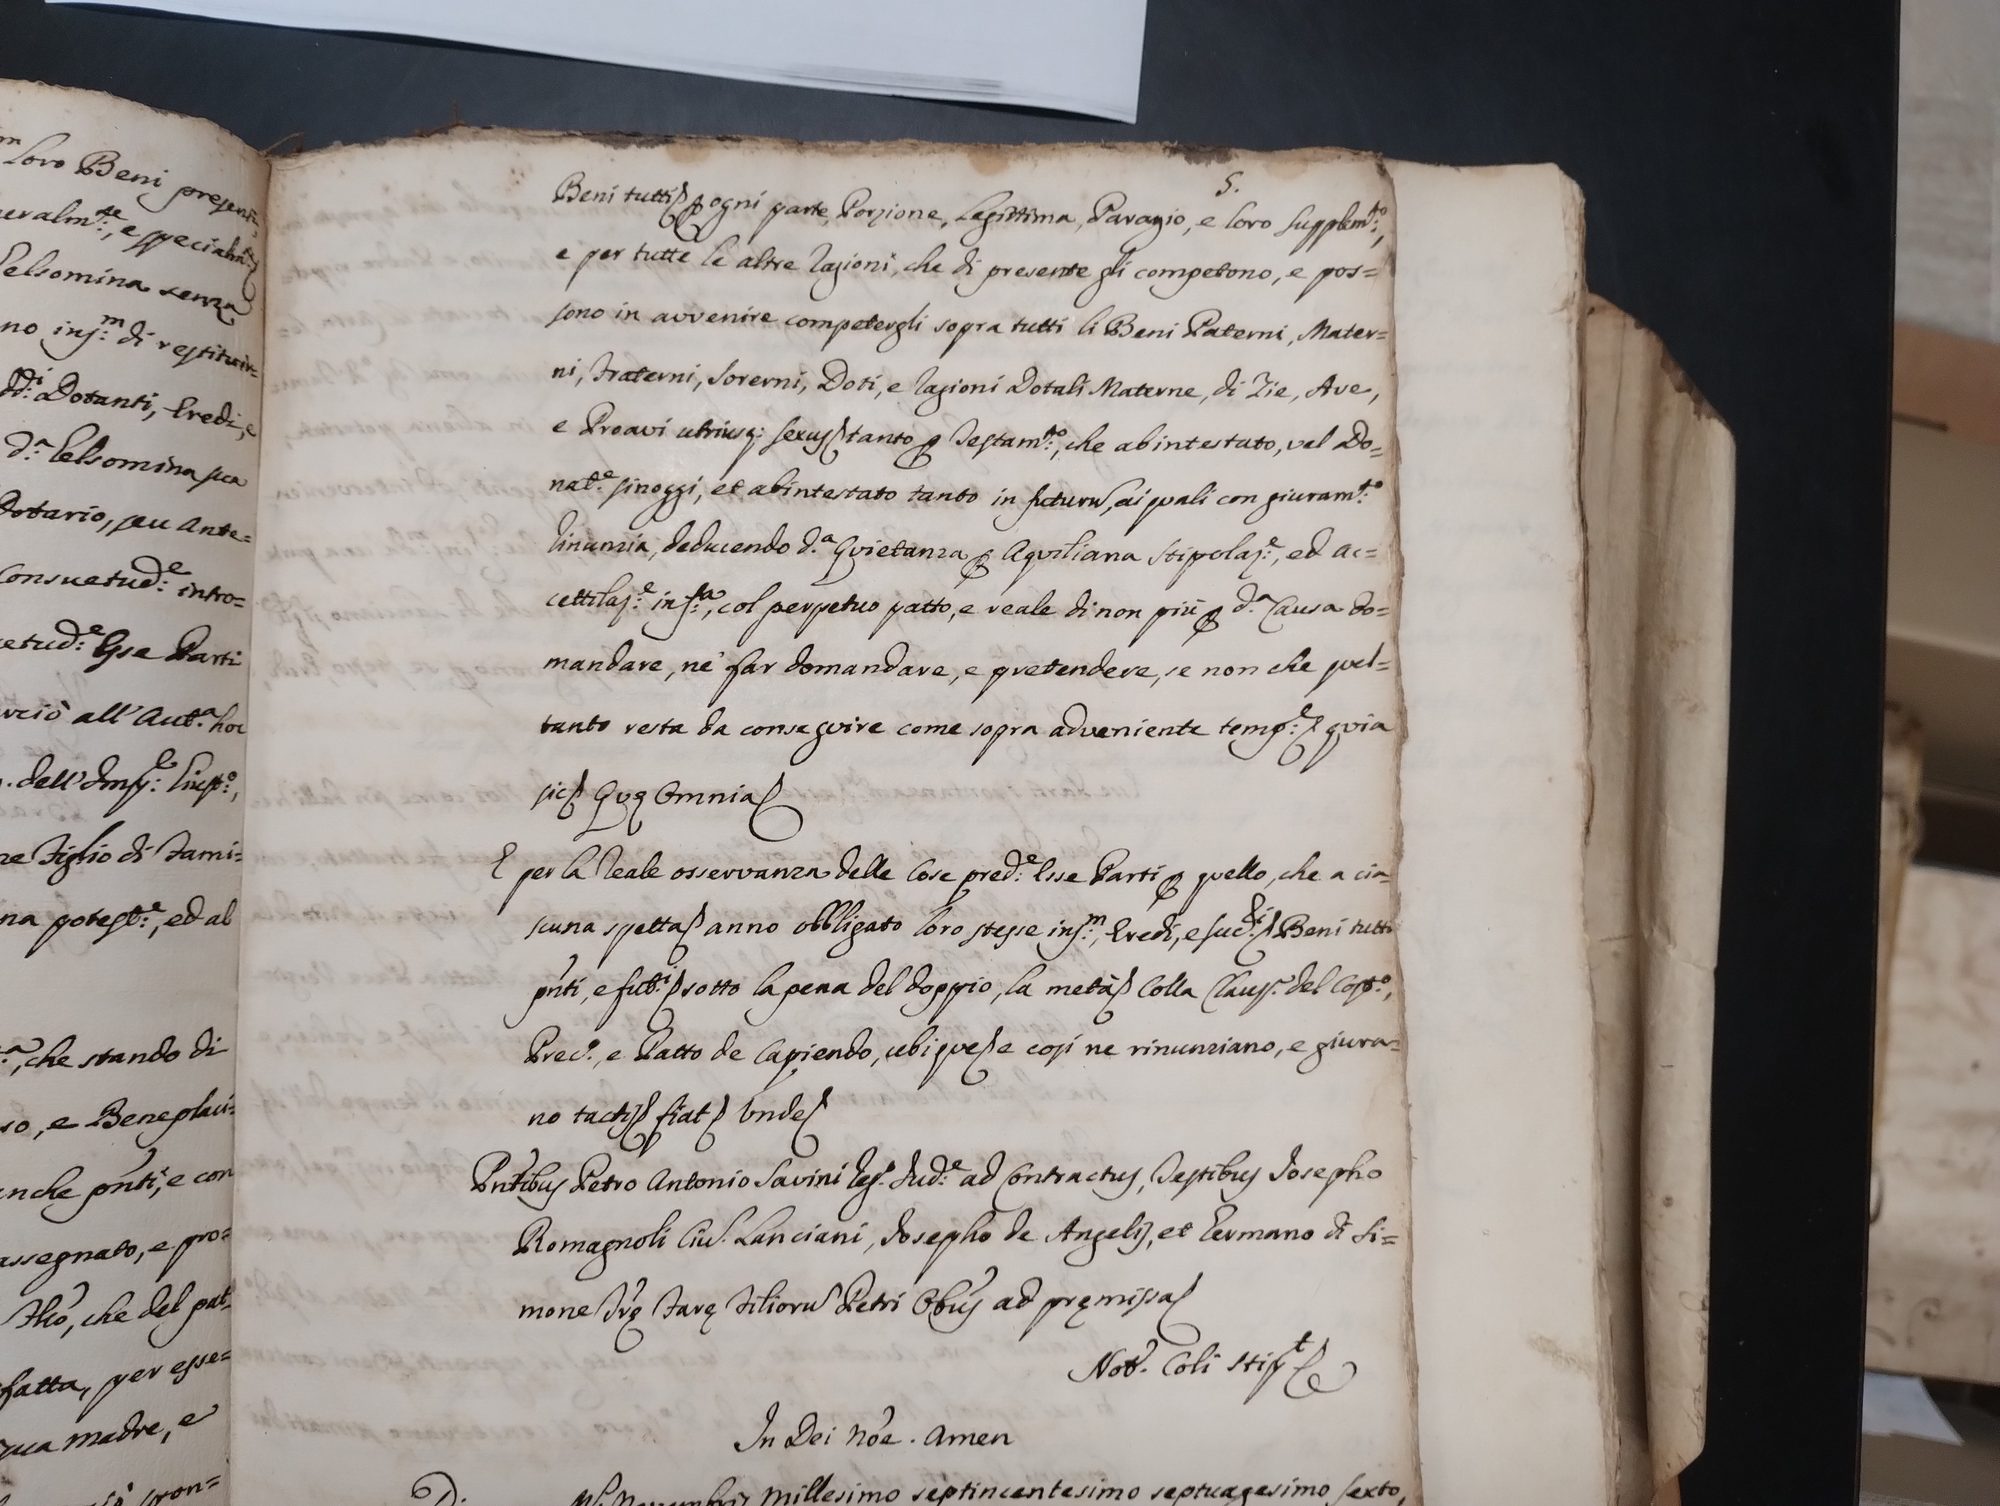 loro Beni presenti,
neralm:te, e specialm:te
Celsomina senza
no ins:m di restituir=
dd:i Dotanti, Eredi, e
d:a Celsomina sua
Dotario, seu Ante=
Consuetud:e intro=
etud:e Esse Parti
rciò all'Aut:a hoc
dell'Imp:
re Figlio di Fami=
na potest:e, ed al
che stando di
so, e Beneplaci=
anche pnti, e con
assegnato, e pro=
che del pat=
fatta, per esse=
sua madre, e
5.
Beni tutti p ogni parte, Porzione, Legittima, Paragio, e loro supplem:to,
e per tutte le altre ragioni, che di presente gli competono, e pos=
sono in avvenire competergli sopra tutti li Beni Paterni, Mater=
ni, Fraterni, Sorerni, Doti, e ragioni Dotali Materne, di Zie, Ave,
e Proavi utriusq: sexus tanto p Testam:to, che abintestato, vel Do=
nat:e sinoggi, et abintestato tanto in futuru, ai quali con giuram:to
rinunzia, deducendo d:a Quietanza p Aquiliana stipolaz:e, ed ac=
cettilaz:e ins:ta, col perpetuo patto, e reale di non più p d:a Causa do=
mandare, nè far domandare, e pretendere, se non che quel=
tanto resta da conseguire come sopra adveniente temp:e quia
sic Quę Omnia
E per la reale osservanza delle Cose pred:e Esse Parti p quello, che a cia=
scuna spetta anno obbligato loro stesse ins:m, Eredi, e suc:ri Beni tutti
pnti, e fut:i sotto la pena del doppio, la metà Colla Claus:a del Cost:o,
Prec:o, e Patto de Capiendo, ubique e così ne rinunziano, e giura=
no tactis fiat Unde
Pntibus Petro Antonio Savini Reg:o Jud:e ad Contractus, Testibus Josepho
Romagnoli Civ: Lanciani, Josepho de Angelis, et Germano di Si=
mone Tre Farę Filioru Petri Obus ad pręmissa
Not: Coli stip:t
In Dei Noe. Amen
Novembris Millesimo septincentesimo septuagesimo sexto,